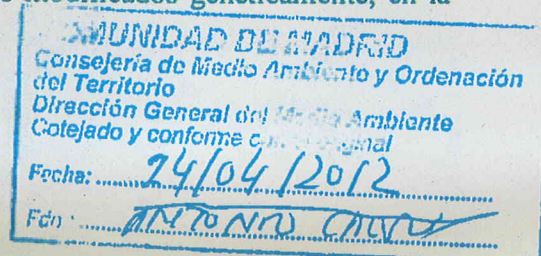 modificados genéticamente, en la
COMUNIDAD DE MADRID
Consejería de Medio Ambiente y Ordenación
del Territorio
Dirección General del Medio Ambiente
Cotejado y conforme con el original
Fecha: 24/04/2012
Fdo: ANTONIO